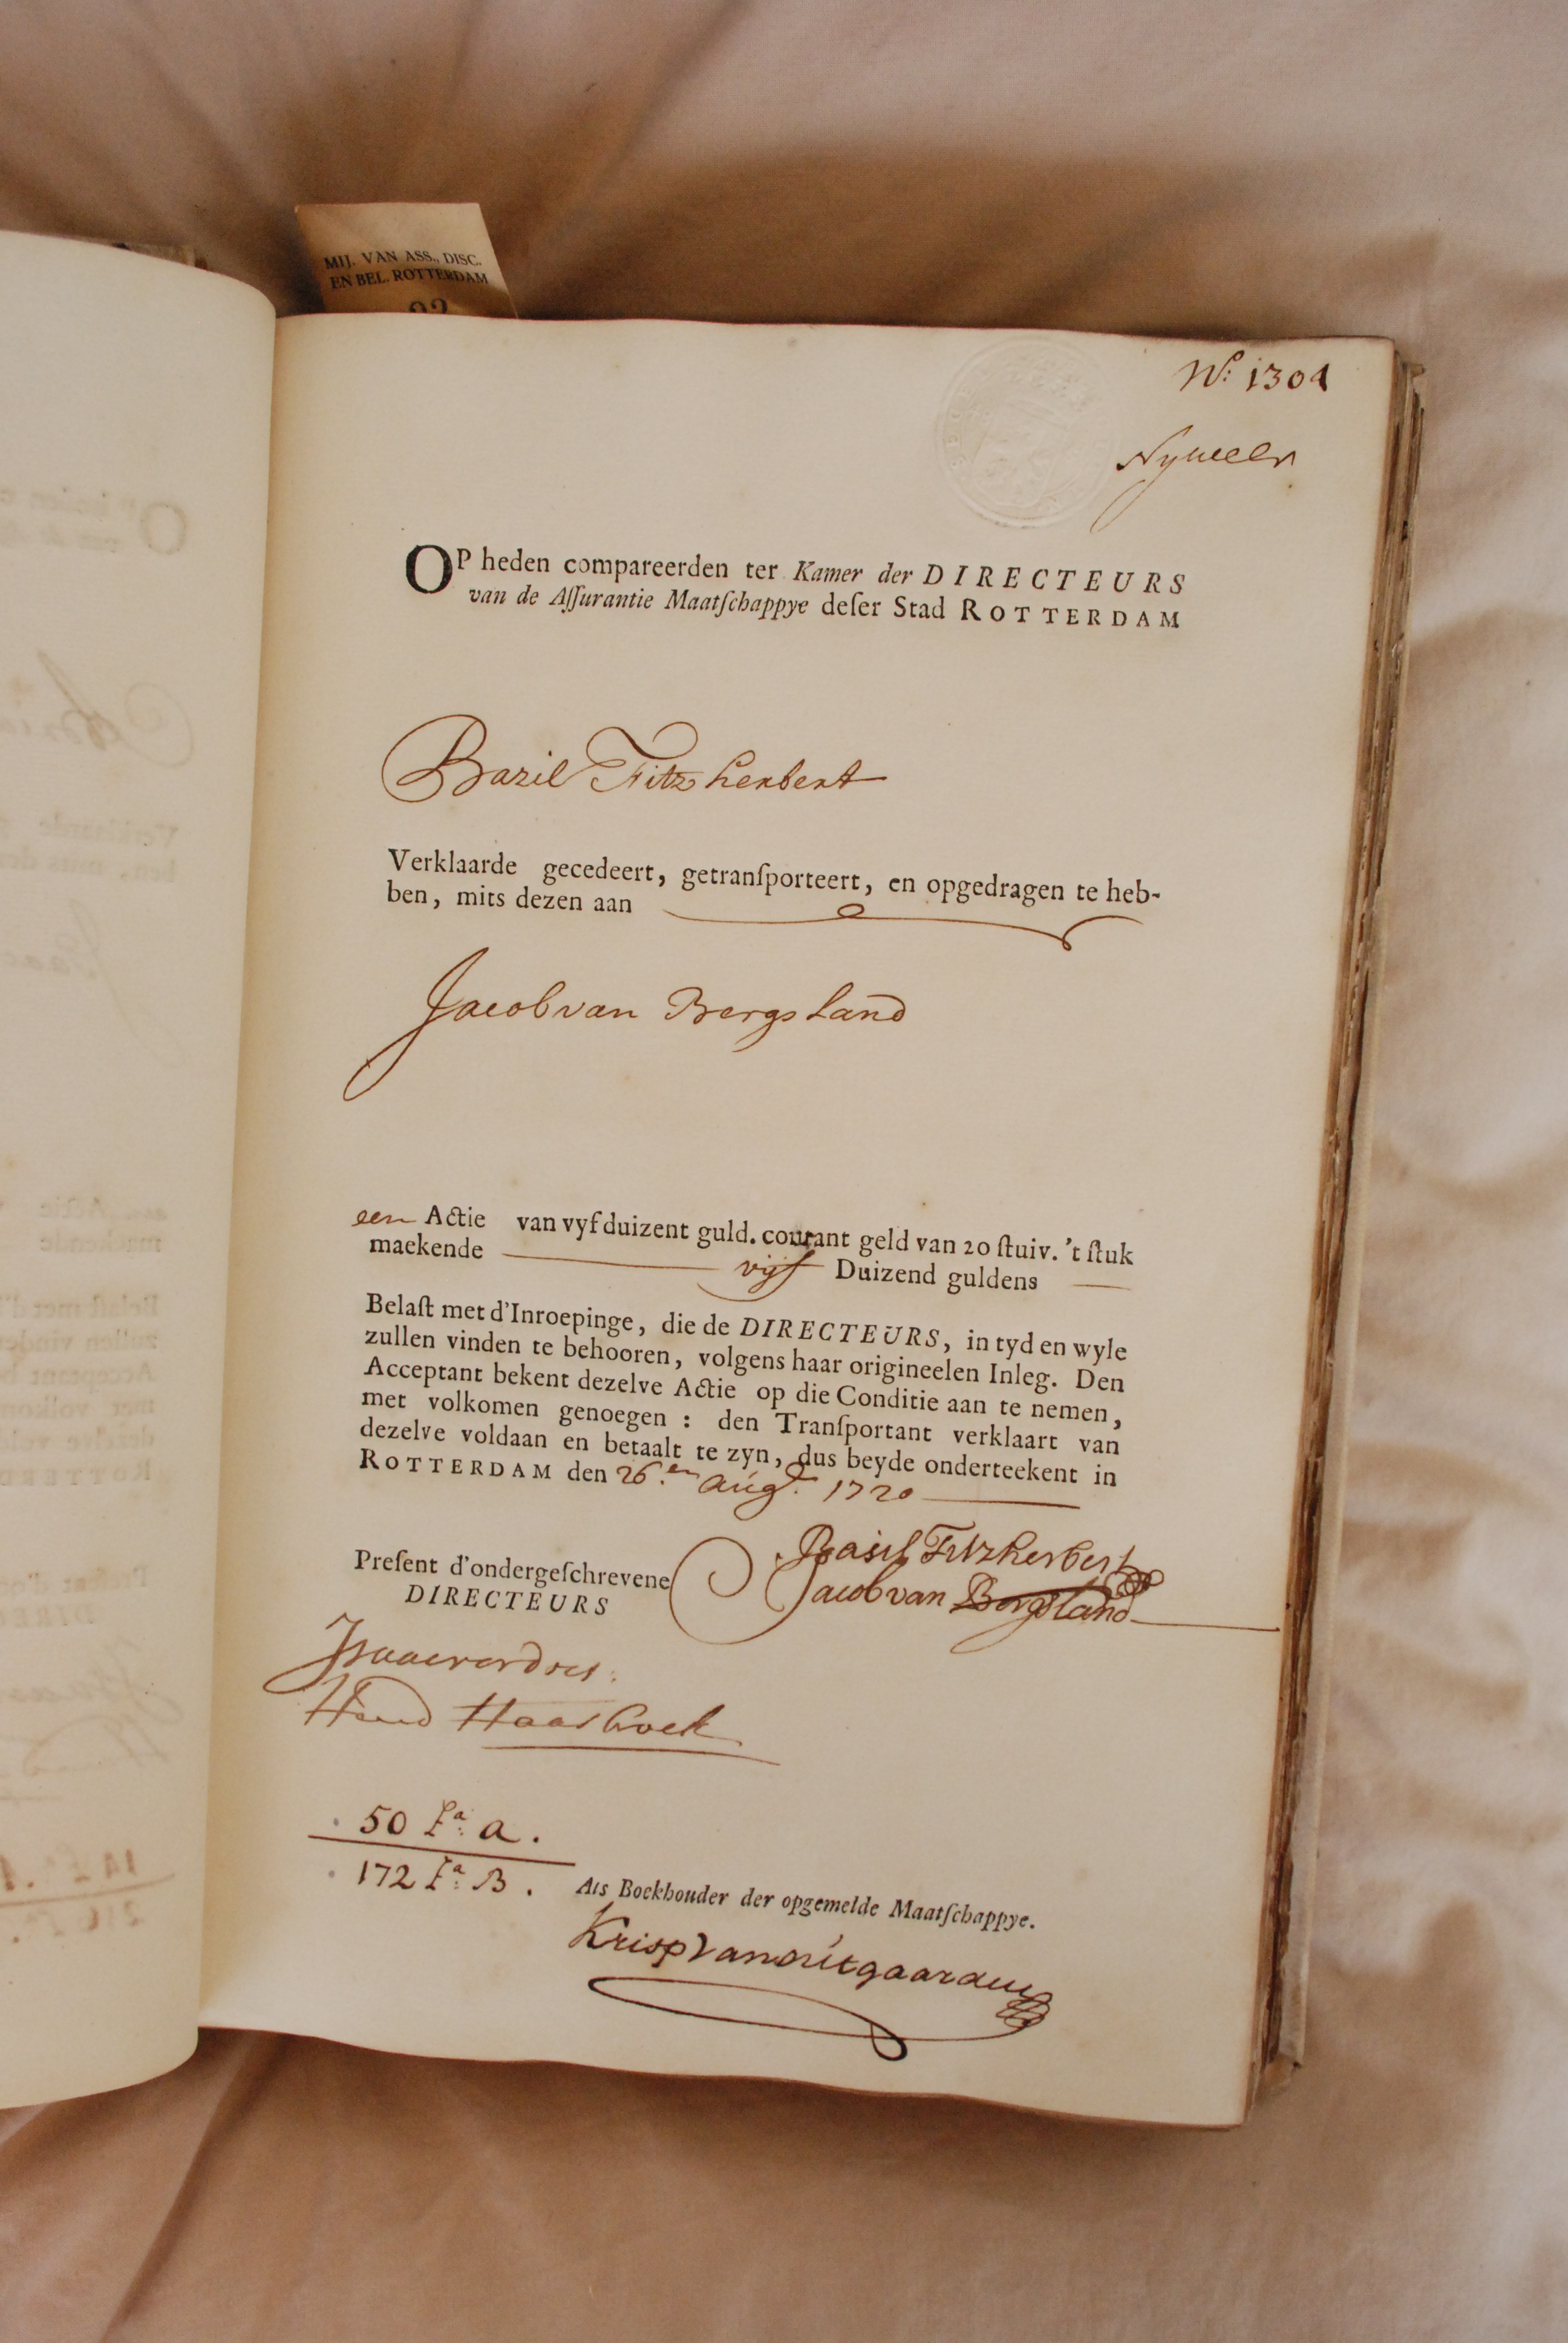 MIJ. VAN ASS., DISC.
EN BEL. ROTTERDAM
92
No: 1304
OP heden compareerden ter Kamer der DIRECTEURS
van de Aſſurantie Maatſchappye deſer Stad ROTTERDAM
Bazil Fitzherbert
Verklaarde gecedeert, getranſporteert, en opgedragen te heb-
ben, mits dezen aan
Jacob van Bergsland
een Actie van vyf duizent guld. courant geld van 20 ſtuiv. 't ſtuk
maekende vijf Duizend guldens
Belaſt met d'Inroepinge, die de DIRECTEURS, in tyd en wyle
zullen vinden te behooren, volgens haar origineelen Inleg. Den
Acceptant bekent dezelve Actie op die Conditie aan te nemen,
met volkomen genoegen : den Tranſportant verklaart van
dezelve voldaan en betaalt te zyn, dus beyde onderteekent in
ROTTERDAM den 26.en Augt. 1720
Preſent d'ondergeſchrevene
DIRECTEURS
Basil Fitzherbert
Jacob van Bergsland
Hend Haashoek
50 Fa: A.
172 Fa: B.
Als Boekhouder der opgemelde Maatſchappye.
Krisp van uitgaarden